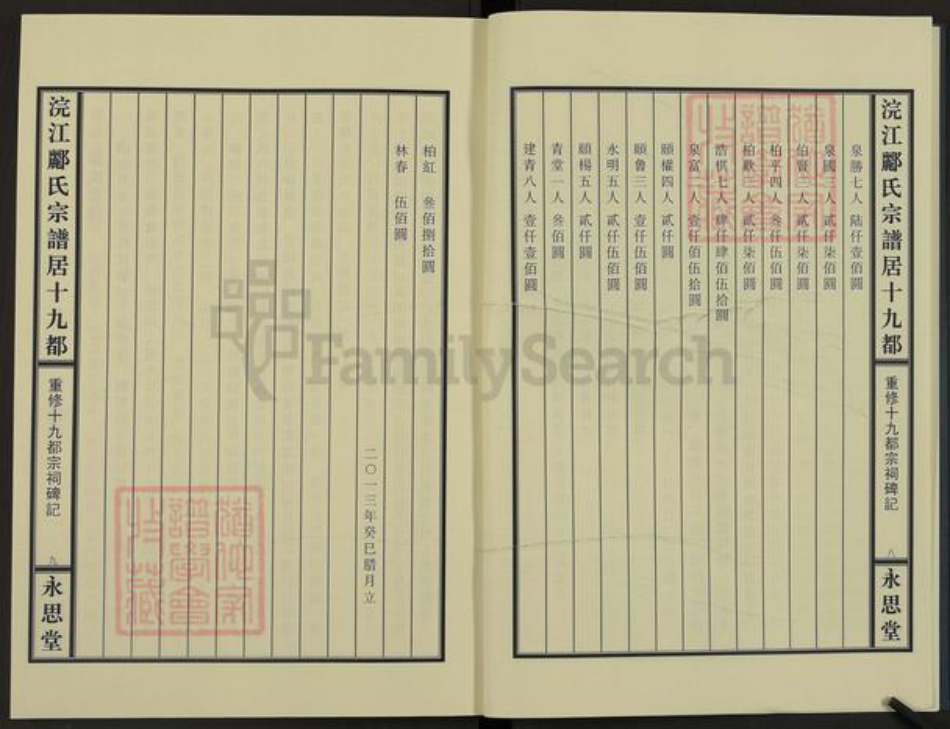 浣江酈氏宗譜居十九都
重修十九都宗祠碑記
八
永思堂
泉勝七人 陸仟壹佰圓
泉國三人 貳仟柒佰圓
伯賢一人 貳仟柒佰圓
柏平四人 叁仟伍佰圓
柏歡一人 貳仟柒佰圓
浩棋七人 肆仟肆佰伍拾圓
泉富二人 壹仟佰伍拾圓
頤權四人 貳仟圓
頤魯三人 壹仟伍佰圓
永明五人 貳仟伍佰圓
頤楊五人 貳仟圓
青堂一人 叁佰圓
建青八人 壹仟壹佰圓
柏紅 叁佰捌拾圓
林春 伍佰圓
二〇一三年癸巳腊月立
浣江酈氏宗譜居十九都
重修十九都宗祠碑記
九
永思堂
FamilySearch